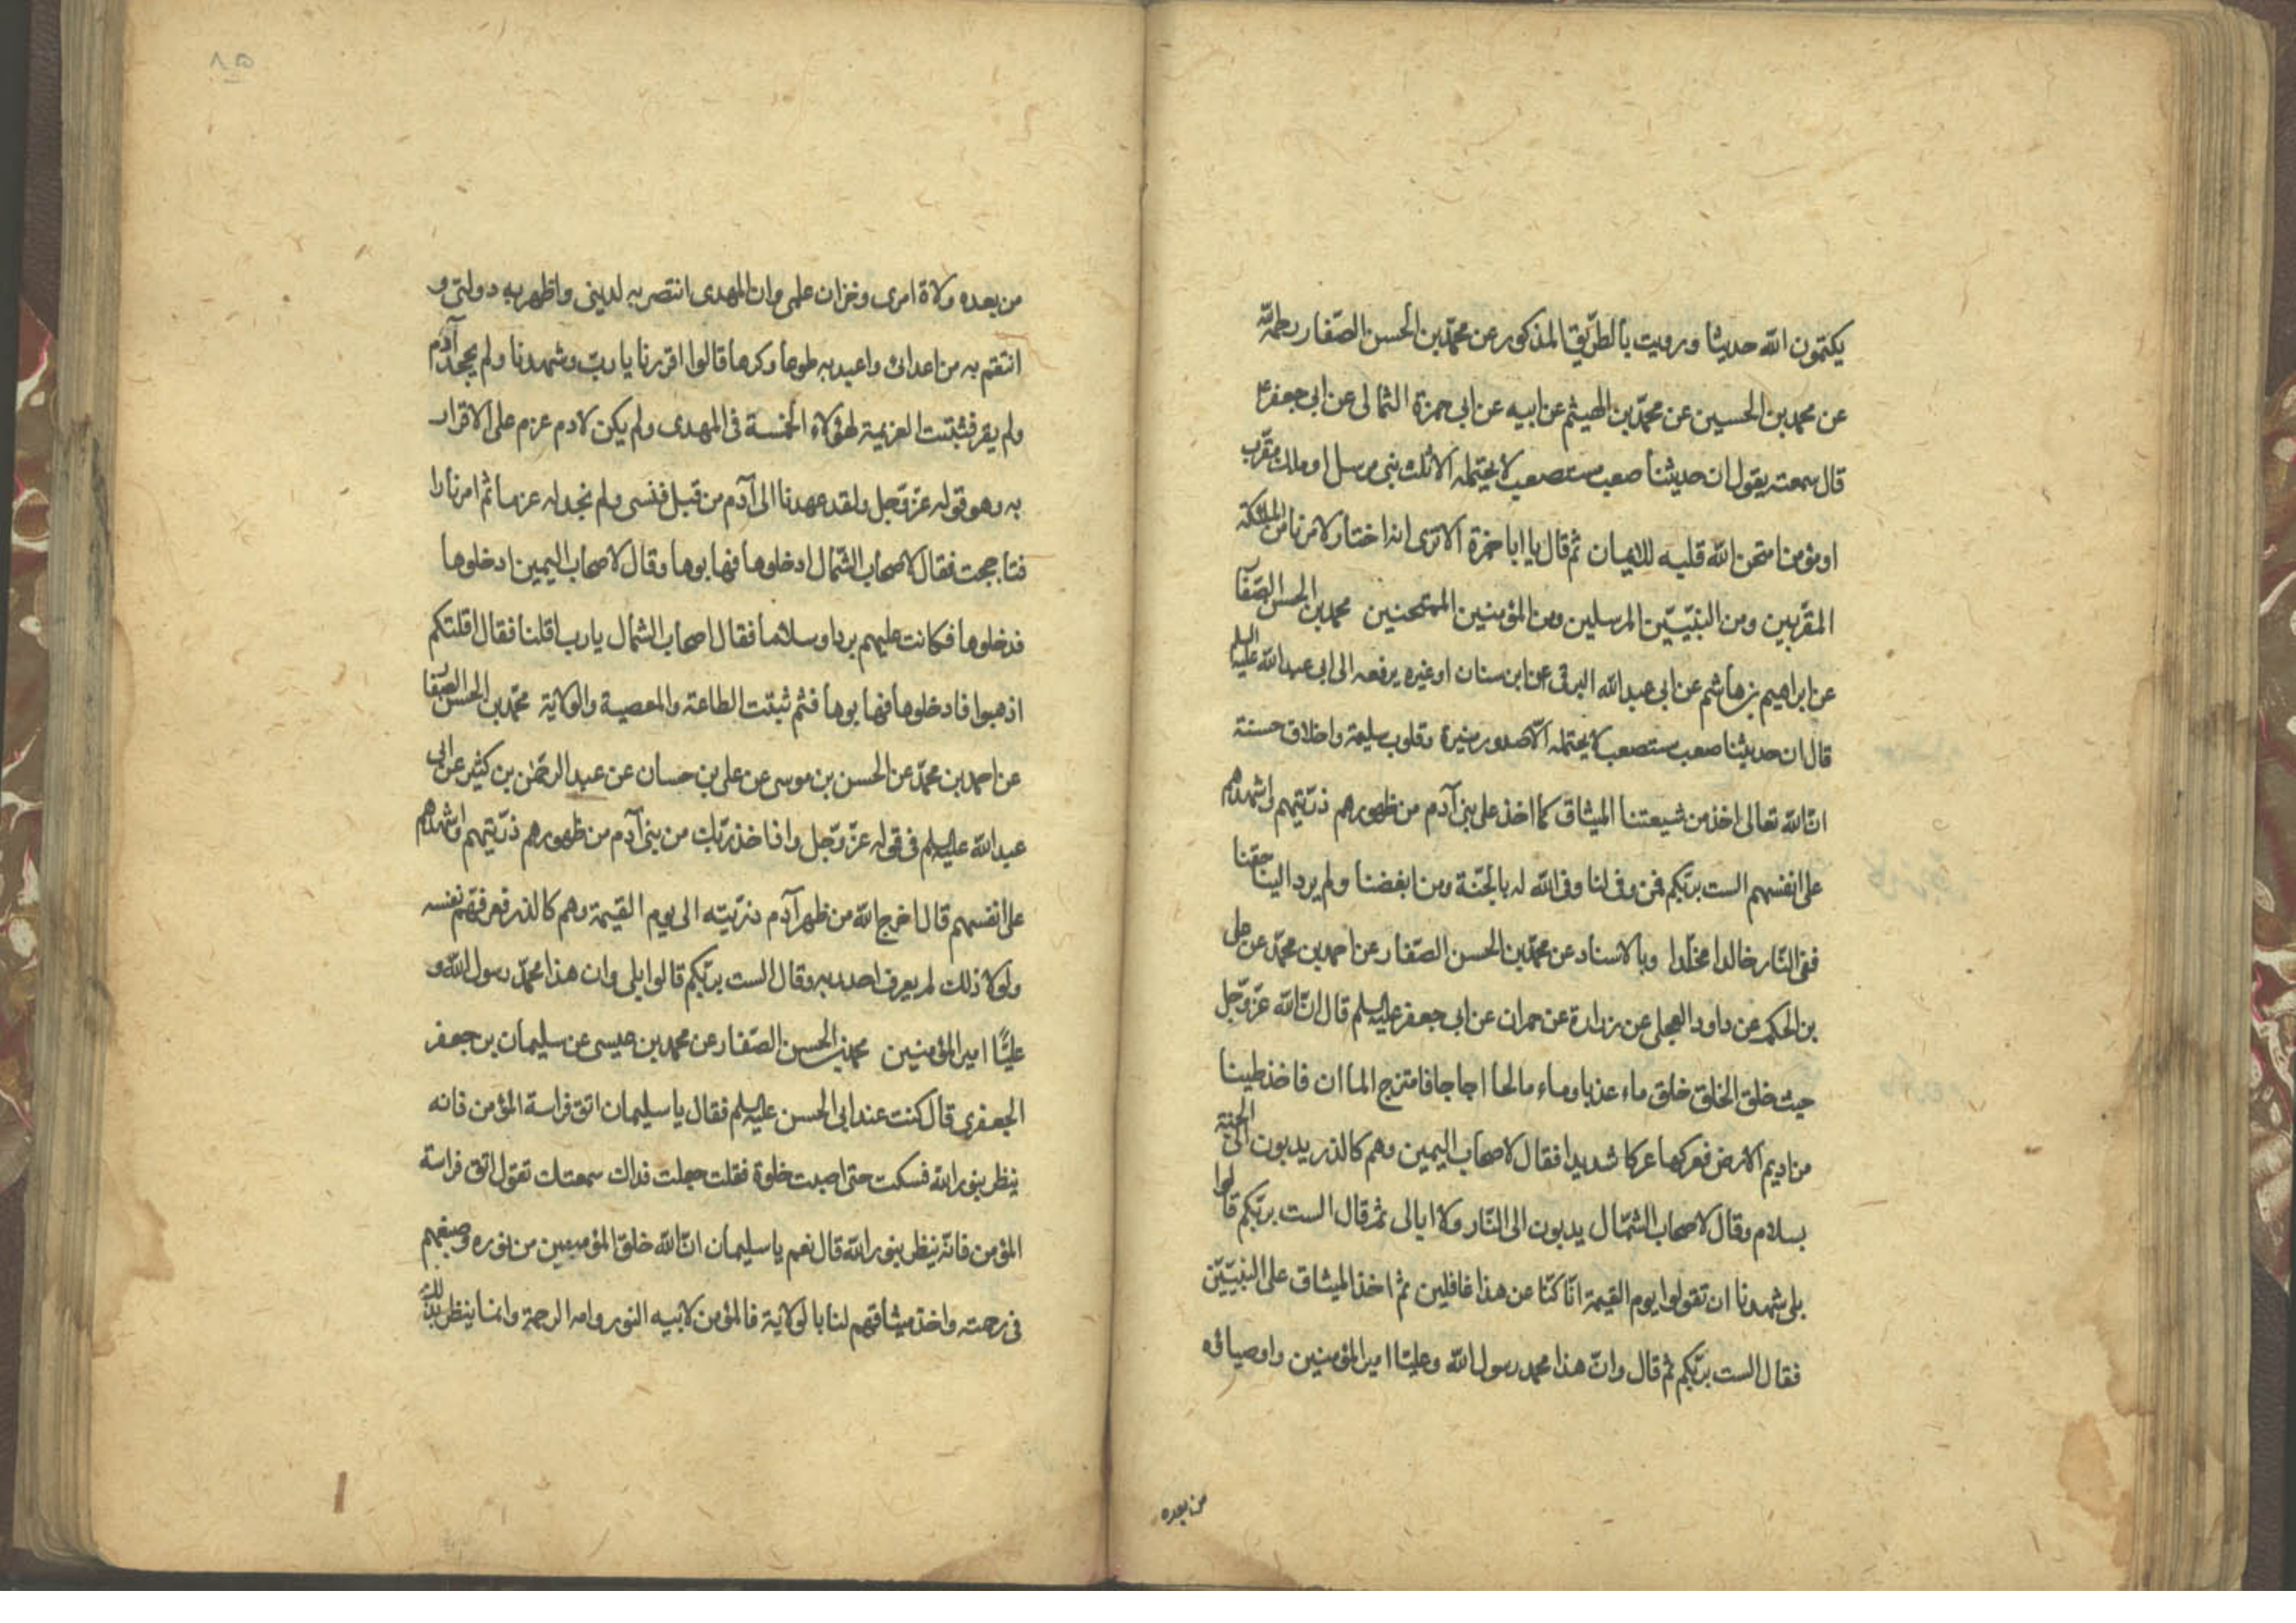 يكتمون الله حديثا ورويت بالطريق المذكور عن محمد بن الحسن الصفار رحمه الله
عن محمد بن الحسين عن محمد بن الهيثم عن ابيه عن ابى حمزة الثمالى عن ابى جعفر ع
قال سمعته يقول ان حديثنا صعب مستصعب لا يحتمله الا ثلث نبى مرسل او ملك مقرب
او مؤمن امتحن الله قلبه للايمان ثم قال يا ابا حمزة الا ترى انه اختار لامرنا من الملائكة
المقربين ومن النبيين المرسلين ومن المؤمنين الممتحنين محمد بن الحسن الصفا
عن ابراهيم بن هاشم عن ابى عبد الله البرقى عن ابن سنان او غيره يرفعه الى ابى عبد الله عليه السلم
قال ان حديثنا صعب مستصعب لا يحتمله الا صدور منيرة وقلوب سليمة واخلاق حسنة
ان الله تعالى اخذ من شيعتنا الميثاق كما اخذ على بنى آدم من ظهورهم ذريتهم واشهدهم
على انفسهم الست بربكم فمن وفى لنا وفى الله له بالجنة ومن ابغضنا ولم يرد الينا حقنا
ففى النار خالدا مخلدا وبالاسناد عن محمد بن الحسن الصفار عن احمد بن محمد عن على
بن الحكم عن داود العجلى عن زرارة عن حمران عن ابى جعفر عليه السلم قال ان الله عز وجل
حيث خلق الخلق خلق ماء عذبا وماء مالحا اجاجا فامتزج الماان فاخذ طينا
من اديم الارض فعركها عركا شديدا فقال لاصحاب اليمين وهم كالذر يدبون الى الجنة
بسلام وقال لاصحاب الشمال يدبون الى النار ولا ابالى ثم قال الست بربكم قالوا
بلى شهدنا ان تقولوا يوم القيمة انا كنا عن هذا غافلين ثم اخذ الميثاق على النبيين
فقال الست بربكم ثم قال وان هذا محمد رسول الله وعليا امير المؤمنين واوصياؤه
من بعده
٨٥
من بعده ولاة امرى وخزان علمى وان المهدى انتصر به لدينى واظهر به دولتى و
انتقم به من اعدائى واعبد به طوعا وكرها قالوا اقررنا يا رب وشهدنا ولم يجحد آدم
ولم يقر فثبتت العزيمة لهؤلاء الخمسة فى المهدى ولم يكن لادم عزم على الاقرار
به وهو قوله عز وجل ولقد عهدنا الى آدم من قبل فنسى ولم نجد له عزما ثم امر نارا
فتاججت فقال لاصحاب الشمال ادخلوها فهابوها وقال لاصحاب اليمين ادخلوها
فدخلوها فكانت عليهم بردا وسلاما فقال اصحاب الشمال يا رب اقلنا فقال اقلتكم
اذهبوا فادخلوها فهابوها فثم ثبتت الطاعة والمعصية والولاية محمد بن الحسن الصفار
عن احمد بن محمد عن الحسن بن موسى عن على بن حسان عن عبد الرحمن بن كثير عن ابى
عبد الله عليه السلم فى قوله عز وجل واذ اخذ ربك من بنى آدم من ظهورهم ذريتهم واشهدهم
على انفسهم قال اخرج الله من ظهر آدم ذريته الى يوم القيمة وهم كالذر فعرفهم نفسه
ولولا ذلك لم يعرف احد ربه وقال الست بربكم قالوا بلى وان هذا محمد رسول الله و
عليا امير المؤمنين محمد بن الحسن الصفار عن محمد بن عيسى عن سليمان بن جعفر
الجعفرى قال كنت عند ابى الحسن عليه السلم فقال يا سليمان اتق فراسة المؤمن فانه
ينظر بنور الله فسكت حتى اصبت خلوة فقلت جعلت فداك سمعتك تقول اتق فراسة
المؤمن فانه ينظر بنور الله قال نعم يا سليمان ان الله خلق المؤمنين من نوره وصبغهم
فى رحمته واخذ ميثاقهم لنا بالولاية فالمؤمن لابيه النور وامه الرحمة وانما ينظر بذلك